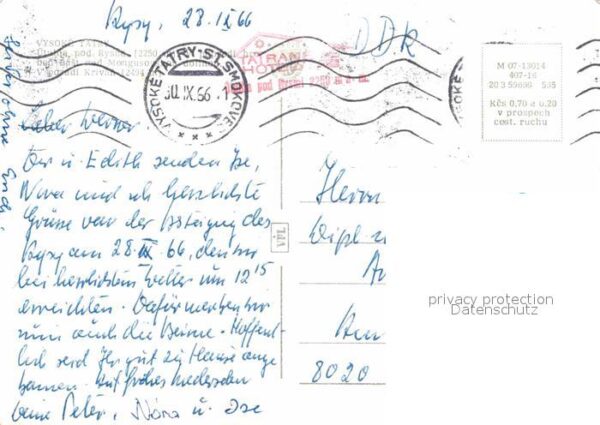 Rysy, 28.IX 66
DDR
VYSOKÉ TATRY
TATRAN
HOTEL
VYSOKÉ TATRY - ST. SMOKOVEC
30.IX.66
M 07-13014
407-16
20 3 55 535
Kčs 0,70 a 0,20
v prospech
cest. ruchu
Lieber Werner
u. Edith senden
und ich herzlichste
Grüsse von der Besteigung des
Rysy am 28.IX 66, den wir
bei herrlichstem Wetter um 12 15
erreichten. Dafür merken wir
nun auch die Beine. Hoffent-
lich seid Ihr gut zu Hause ange
kommen. Auf frohes Wiedersehen
Peter, Nóra u. Ise
VPL
Herrn
Dipl
8020
privacy protection
Datenschutz